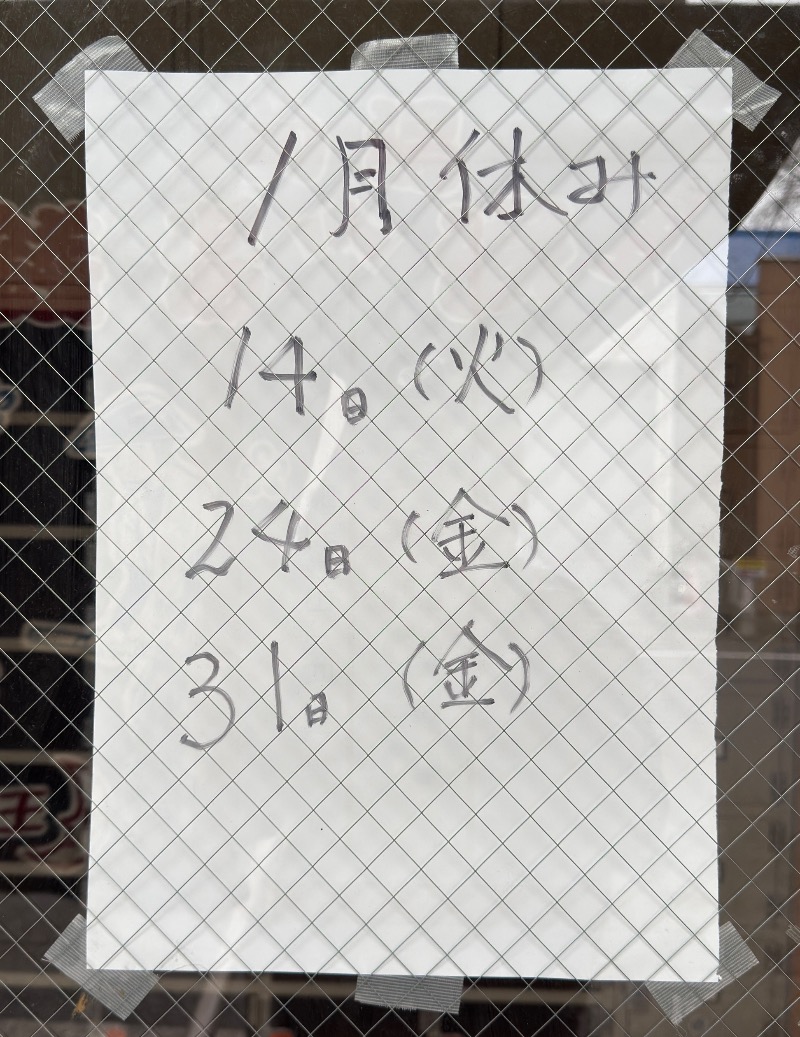 1月休み
14日(火)
24日(金)
31日(金)